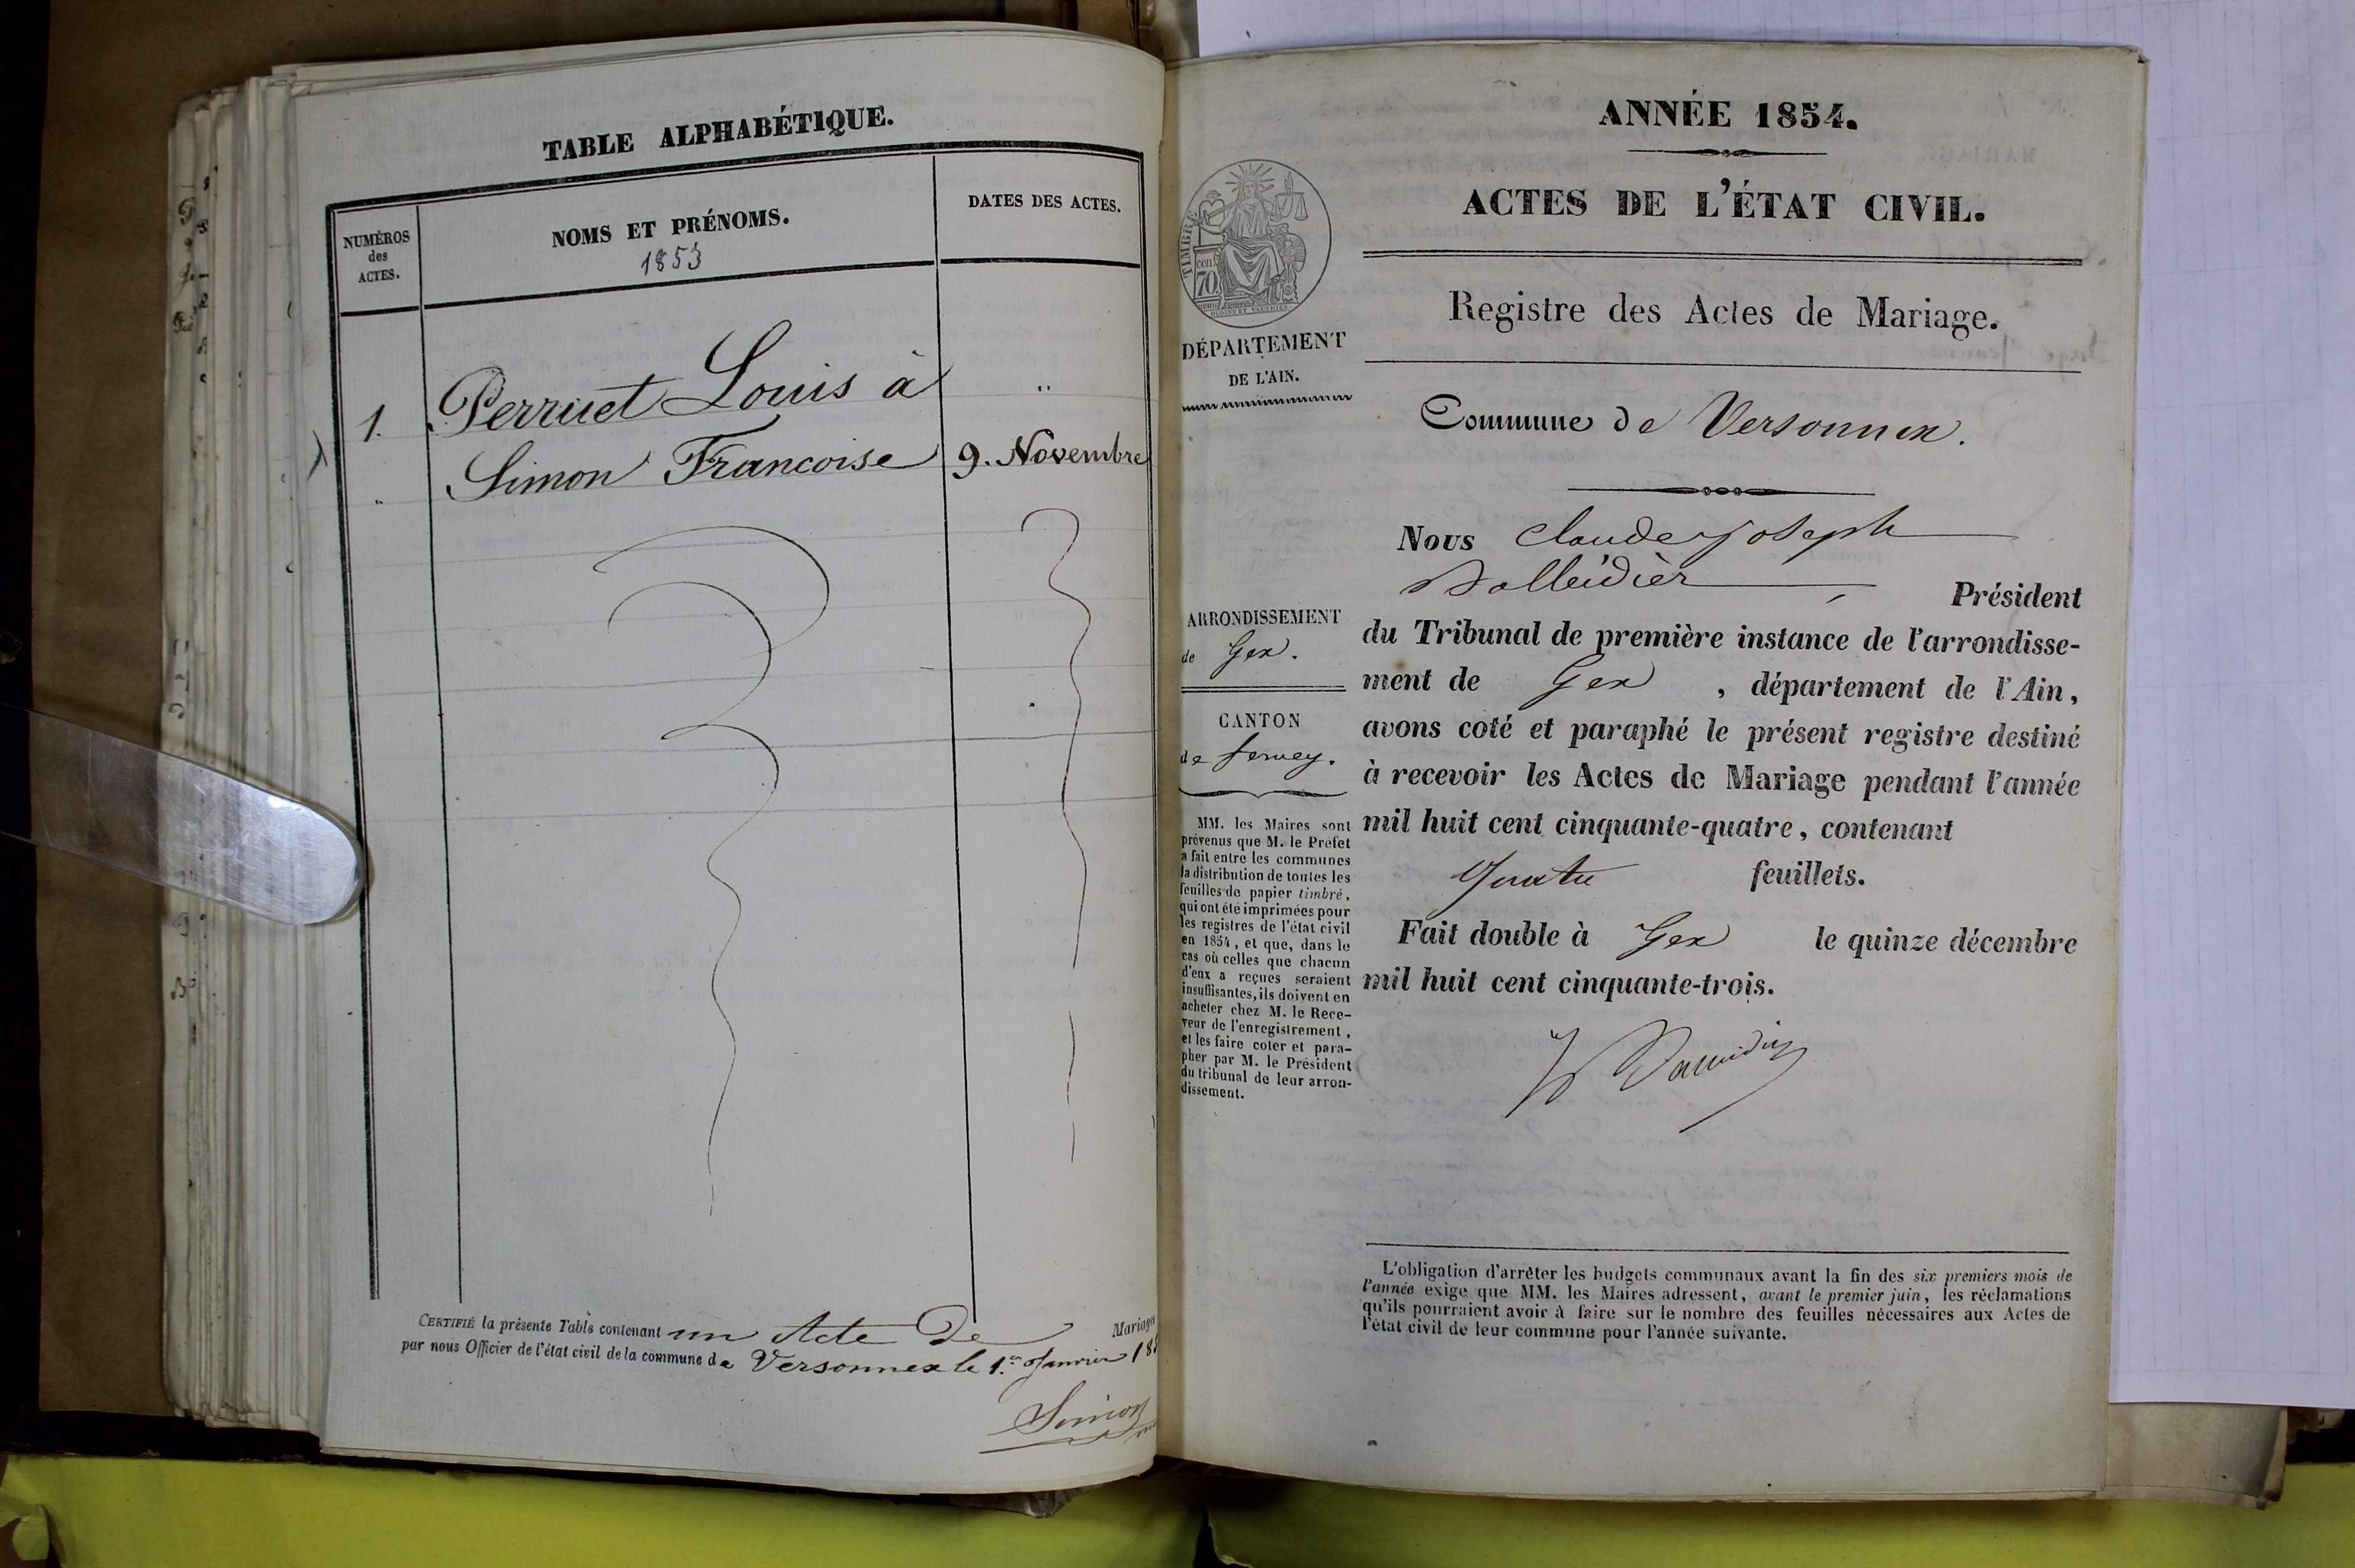 TABLE ALPHABÉTIQUE.
NUMÉROS
des
ACTES.
NOMS ET PRÉNOMS.
1853
DATES DES ACTES.
1. Perruet Louis à "
" Simon Francoise 9. Novembre
CERTIFIÉ la présente Table contenant un Acte De Mariages
par nous Officier de l'état civil de la commune de Versonnex le 1.er Janvier 185
Simon
ANNÉE 1854.
ACTES DE L'ÉTAT CIVIL.
Registre des Actes de Mariage.
TIMBRE
cen.
70.
DÉPARTEMENT
DE L'AIN.
Commune de Versonnex.
Nous Claude Joseph
Président
ARRONDISSEMENT
de Gex.
CANTON
de Ferney.
du Tribunal de première instance de l'arrondisse-
ment de Gex, département de l'Ain,
avons coté et paraphé le présent registre destiné
à recevoir les Actes de Mariage pendant l'année
mil huit cent cinquante-quatre, contenant
Quatre feuillets.
Fait double à Gex le quinze décembre
mil huit cent cinquante-trois.
MM. les Maires sont
prévenus que M. le Préfet
a fait entre les communes
la distribution de toutes les
feuilles de papier timbré,
qui ont été imprimées pour
les registres de l'état civil
en 1854, et que, dans le
cas où celles que chacun
d'eux a reçues seraient
insuffisantes, ils doivent en
acheter chez M. le Rece-
veur de l'enregistrement,
et les faire coter et para-
pher par M. le Président
du tribunal de leur arron-
dissement.
L'obligation d'arrêter les budgets communaux avant la fin des six premiers mois de
l'année exige que MM. les Maires adressent, avant le premier juin, les réclamations
qu'ils pourraient avoir à faire sur le nombre des feuilles nécessaires aux Actes de
l'état civil de leur commune pour l'année suivante.